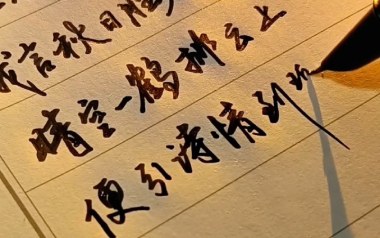 我言秋日胜
晴空一鹤排云上
便引诗情到